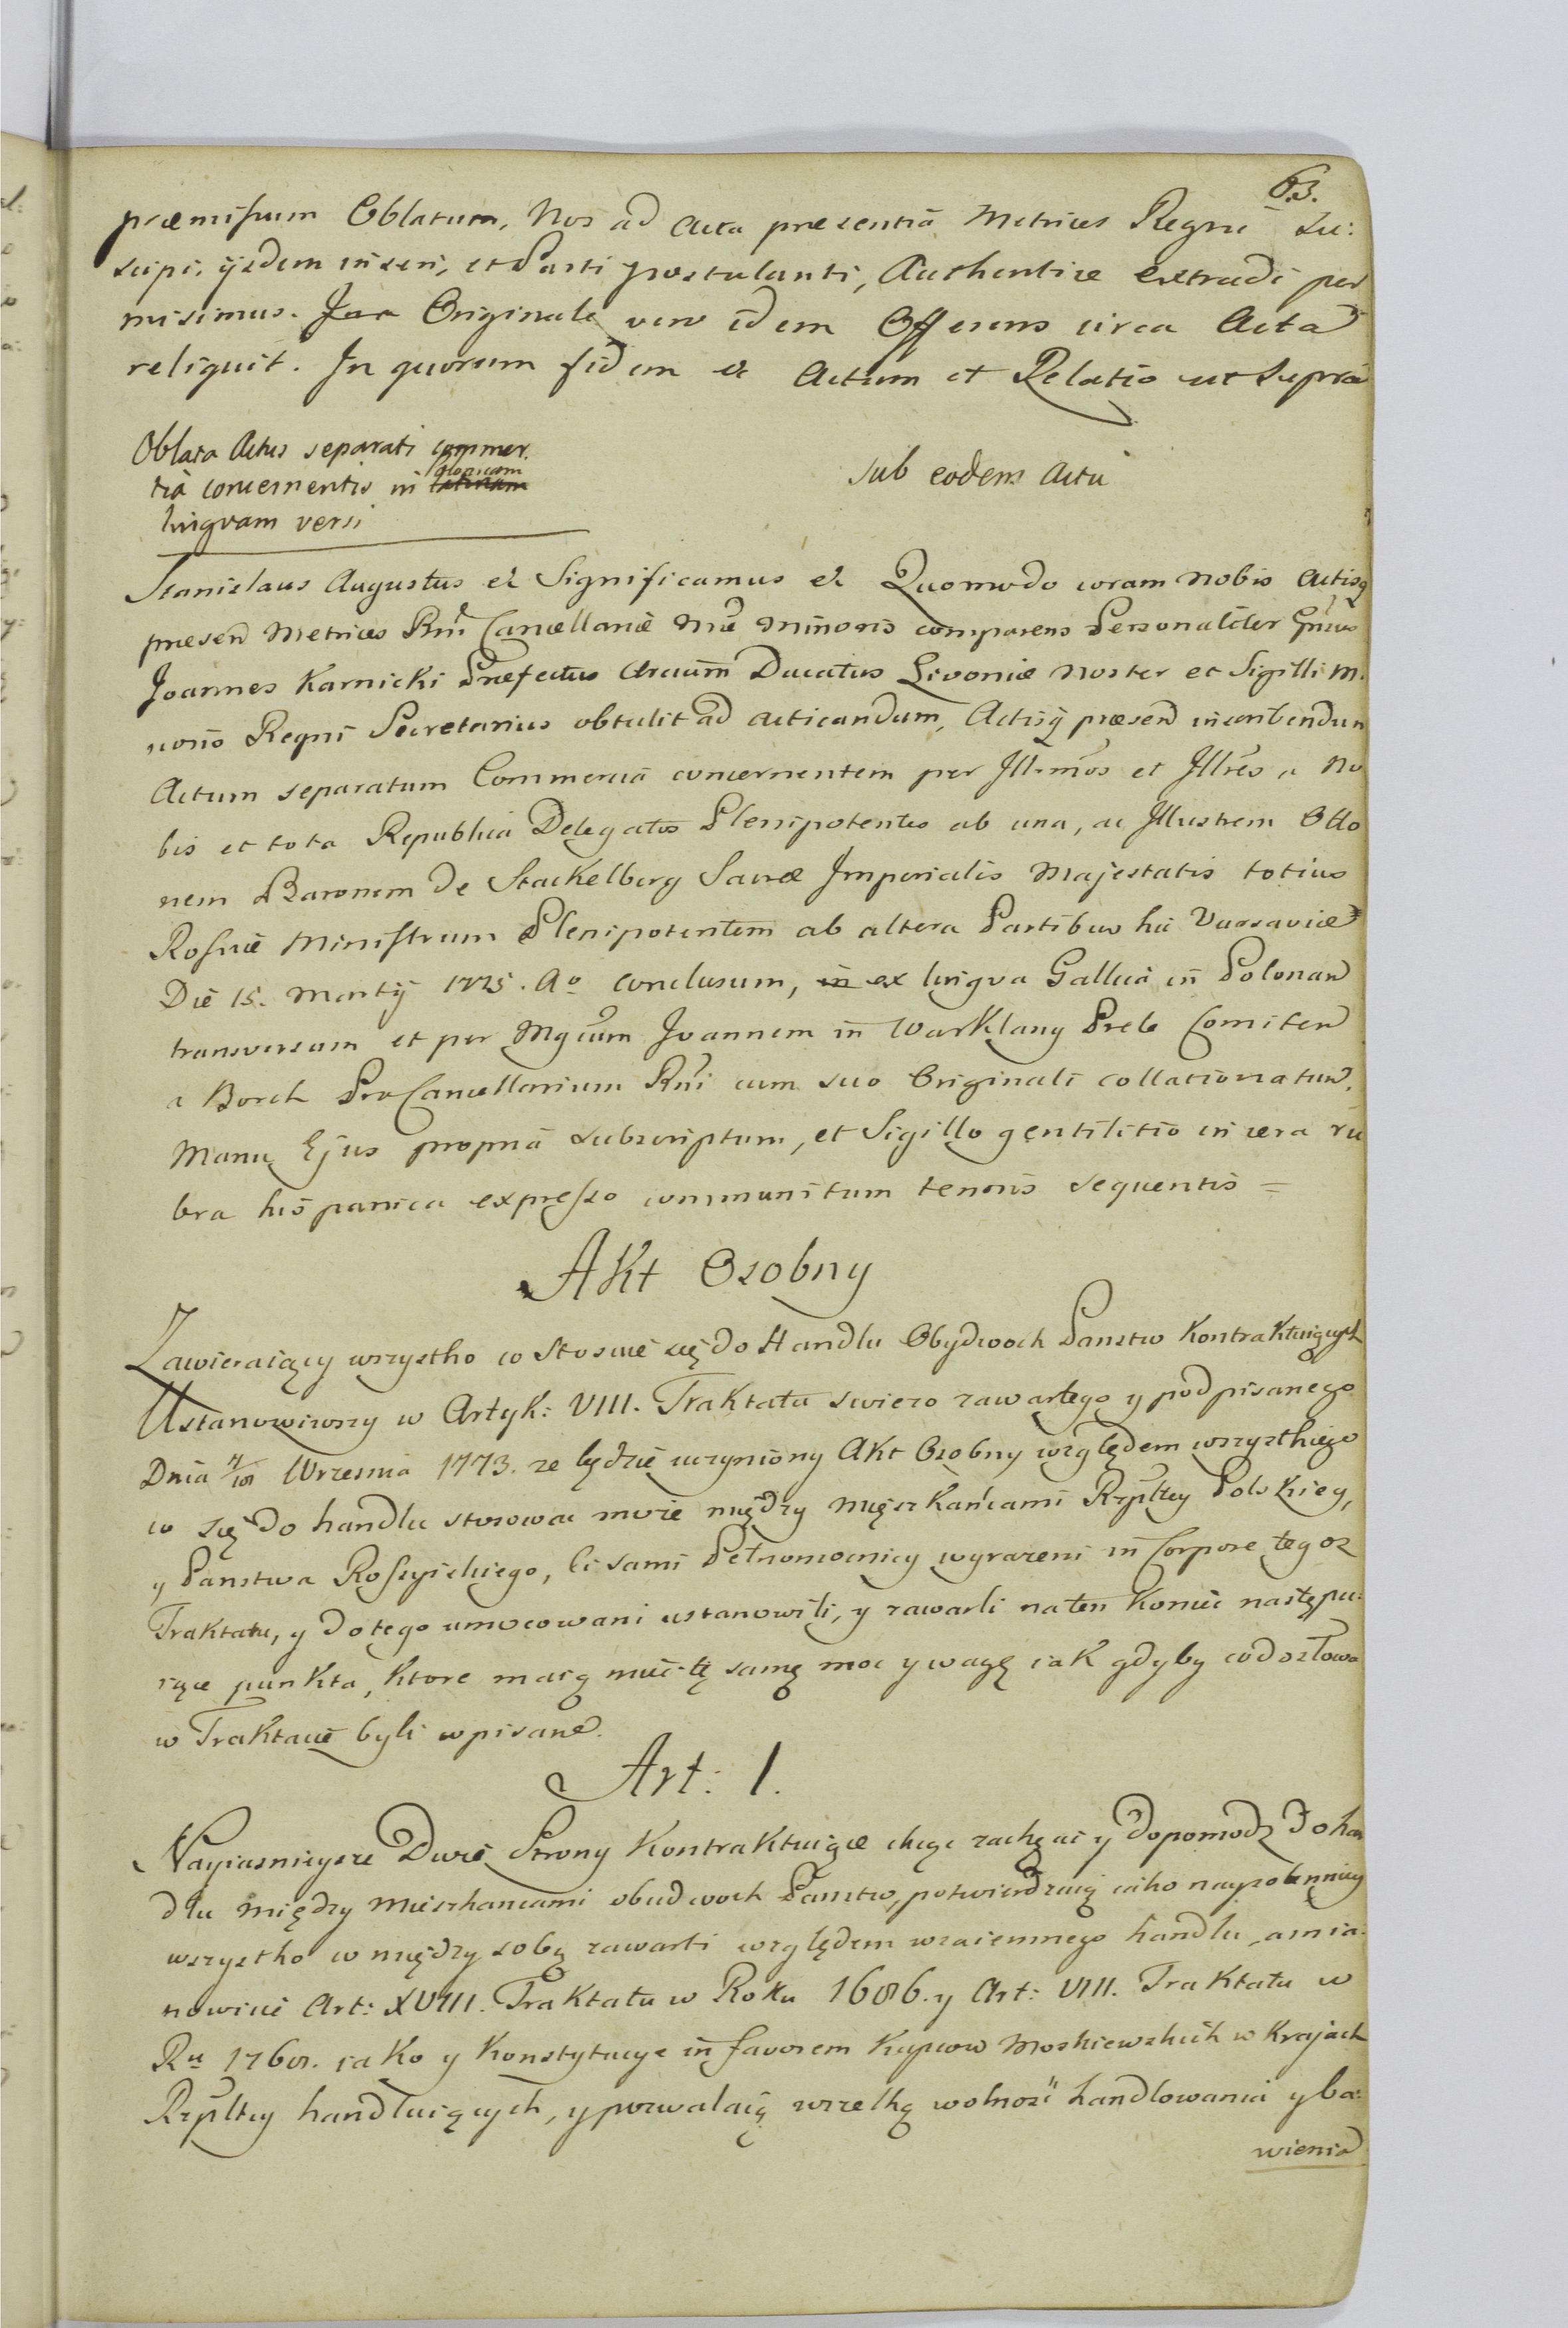 63.
præmissum Oblatum, Nos ad Acta præsentia Metrices Regni Su:
scipi, ijsdem inseri, et Parti postulanti, Authentice extradi per
misimus. Jaa Originale vero idem Offerens circa Acta
reliquit. In quorum fidem &c Actum et Relatio ut supra
Oblata Actus separati commer
tia concernentis in latinam Polonicam
lingvam versi
sub eodem Actu
Stanislaus Augustus &c Significamus &c Quomodo coram Nobis Actisq
præsen Metrices Rni Cancellariæ Mię Minoris comparens Personaliter Gnrus
Joannes Karnicki Præfectus Arcium Ducatus Livoniæ Noster et Sigilli Mi
noris Regni Secretarius obtulit ad acticandum, Actisq præsen inscribendum
Actum separatum Commercia concernentem per Illmos et Illres a No
bis et tota Republica Delegatos Plenipotentes ab una, ac Illustrem Otto
nem Baronem de Stackelberg Sacræ Imperialis Majestatis totius
Rossiæ Ministrum Plenipotentem ab altera Partibus hic Varsaviæ
Die 15. Martij 1775. Ao conclusum, in ex lingva Gallica in Polonam
transversum et per Mgcum Joannem in Warklany Prele Comitem
a Borch ProCancellarium Rni cum suo Originali collationatum.
Manu Ejus propria subscriptum, et Sigillo gentilitio in cera ru
bra hispanica expresso communitum tenoris sequentis =
Akt Osobny
Zawieraiący wszystko co stosuie się do Handlu Obydwoch Panstw Kontraktuiących
Ustanowiwszy w Artyk: VIII. Traktatu swiezo zawartego y podpisanego
Dnia 7/18 Wrzesnia 1773. ze będzie uczyniony Akt Osobny względem wszystkiego
co się do handlu stosowac moze między Mięszkańcami Rzpltey Polskiey,
y Panstwa Rossyiskiego, Ci sami Pełnomocnicy wyrazeni in Corpore tegoz
Traktatu, y do tego umocowani ustanowili, y zawarli na ten Koniec następu:
iące punkta, Ktore maią mieć tę samę moc y wagę iak gdyby co do słowa
w Traktacie byli wpisane.
Art: 1.
Nayiasnieysze Dwie Strony Kontraktuiące chcąc zachęcić y dopomodz do han
dlu między Mieszkancami obudwoch Panstw, potwierdzaią iako nayzolenniey
wszystko co między sobą zawarli względem wzaiemnego handlu, a mia:
nowicie Art: XVIII. Traktatu w Roku 1686. y Art: VIII. Traktatu w
Ru 1768. iako y Konstytucye in favorem Kupcow Moskiewskich w Krajach
Rzpltey handluiących, y pozwalaią wszelką wolność handlowania y ba:
wienia